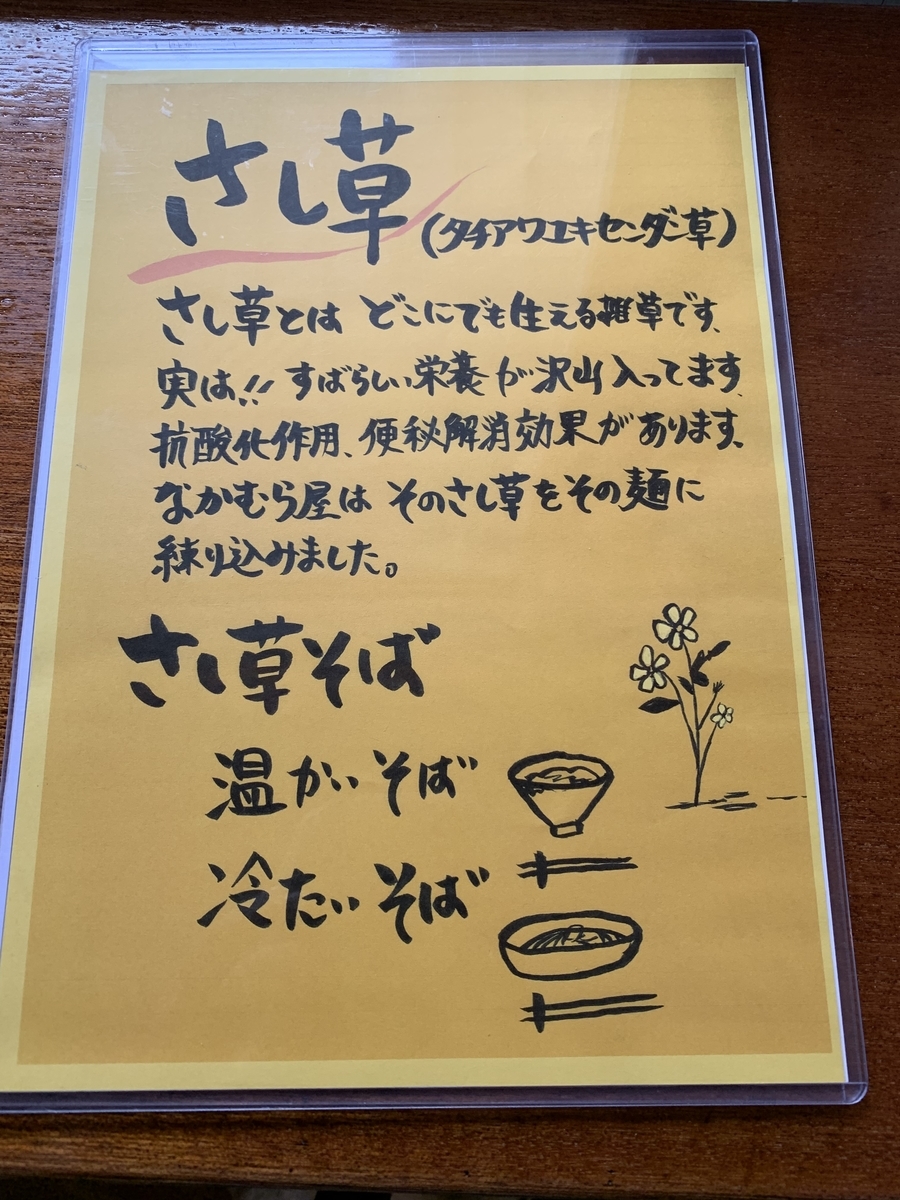 さし草
(タチアワユキセンダン草)
さし草とは どこにでも生える雑草です、
実は!! すばらしい栄養が沢山入ってます、
抗酸化作用、便秘解消効果があります、
なかむら屋は そのさし草をその麺に
練り込みました。
さし草そば
温かいそば
冷たいそば